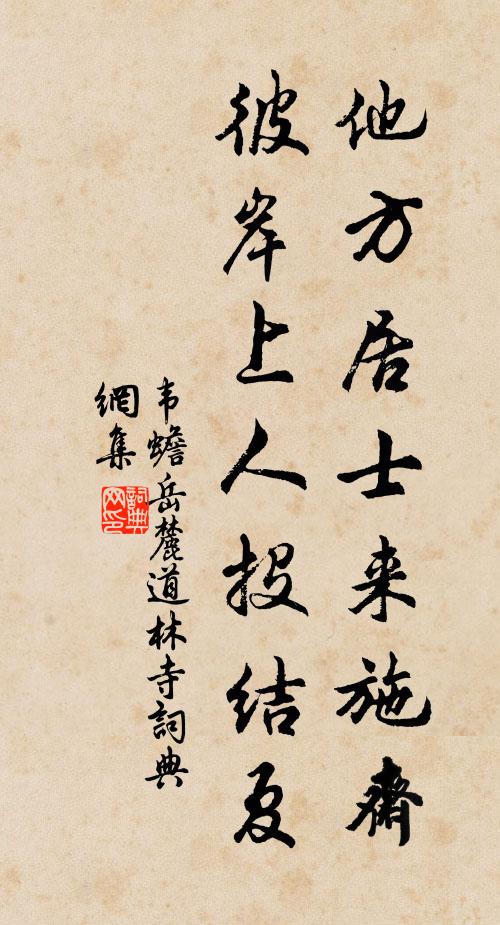 他方居士来施齋
彼岸上人投结夏
韦蟾岳麓道林寺詞典
網集
詞典
网印